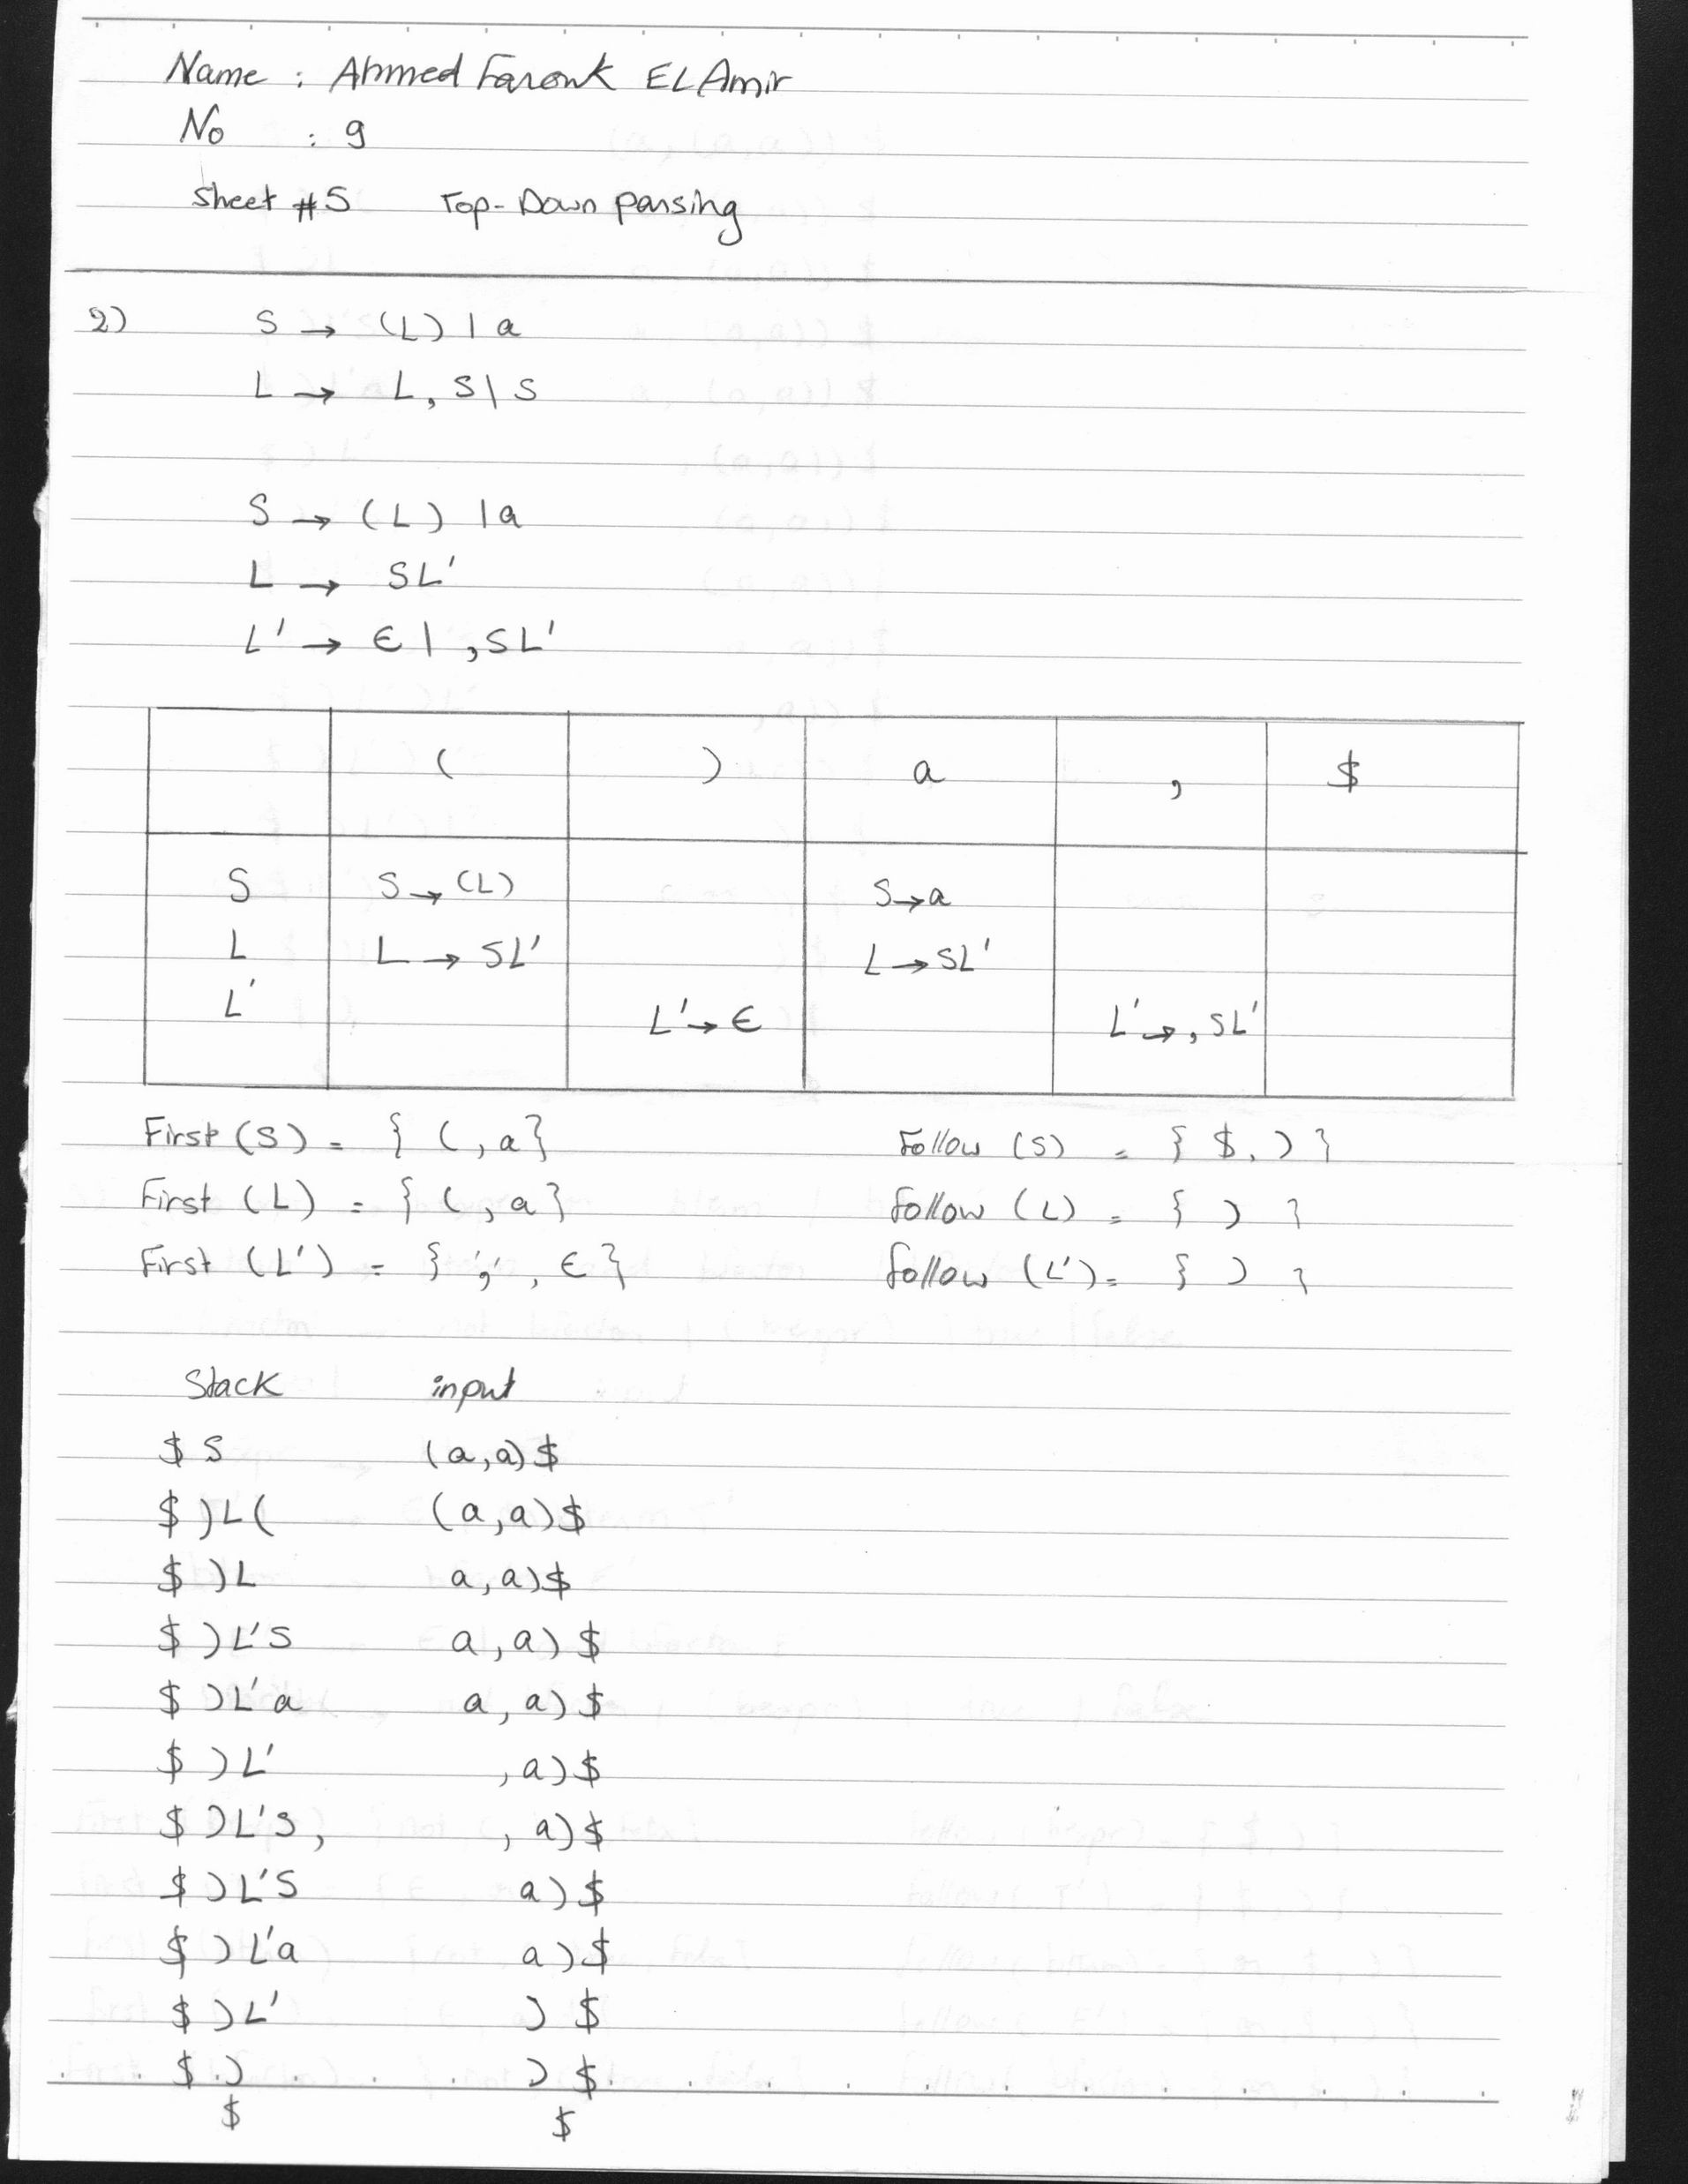 Name : Ahmed Farouk ELAmir
No : 9
Sheet #5 Top-Down parsing
2) S → (L) | a
L → L, S | S
S → (L) | a
L → SL'
L' → ϵ | ,SL'
( ) a , $
S S→(L) S→a
L L → SL' L→SL'
L' L'→ϵ L'→,SL'
First (S) = { (, a} Follow (S) = { $, ) }
First (L) = { (, a} follow (L) = { ) }
First (L') = { ',', ϵ} follow (L') = { ) }
Stack input
$ S (a,a)$
$ )L( (a,a)$
$ )L a,a)$
$ )L'S a,a)$
$ )L'a a,a)$
$ )L' ,a)$
$ )L'S, ,a)$
$ )L'S a)$
$ )L'a a)$
$ )L' )$
$ ) )$
$ $